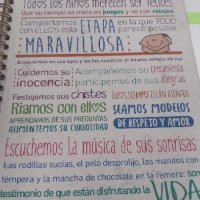 Todos los niños merecen ser felices
Que su tiempo se mida en juegos y no en relojes
Compartamos ETAPA en la que TODO
con ellos esta parece posible
MARAVILLOSA
Busquemos en sus ojos y en los nuestros el mismo reflejo de luz
¡Cuidemos su Acompañemos su crecimiento
inocencia! participemos de sus alegrías
Festejemos sus chistes
Riamos con ellos SEAMOS MODELOS
APRENDAMOS DE SUS PREGUNTAS DE RESPETO y AMOR
ALIMENTEMOS SU CURIOSIDAD
Escuchemos la música de sus sonrisas
Las rodillas sucias, el pelo desprolijo, las manitos con
témpera y la mancha de chocolate en la remera: son
testimonio de que están disfrutando la VIDA